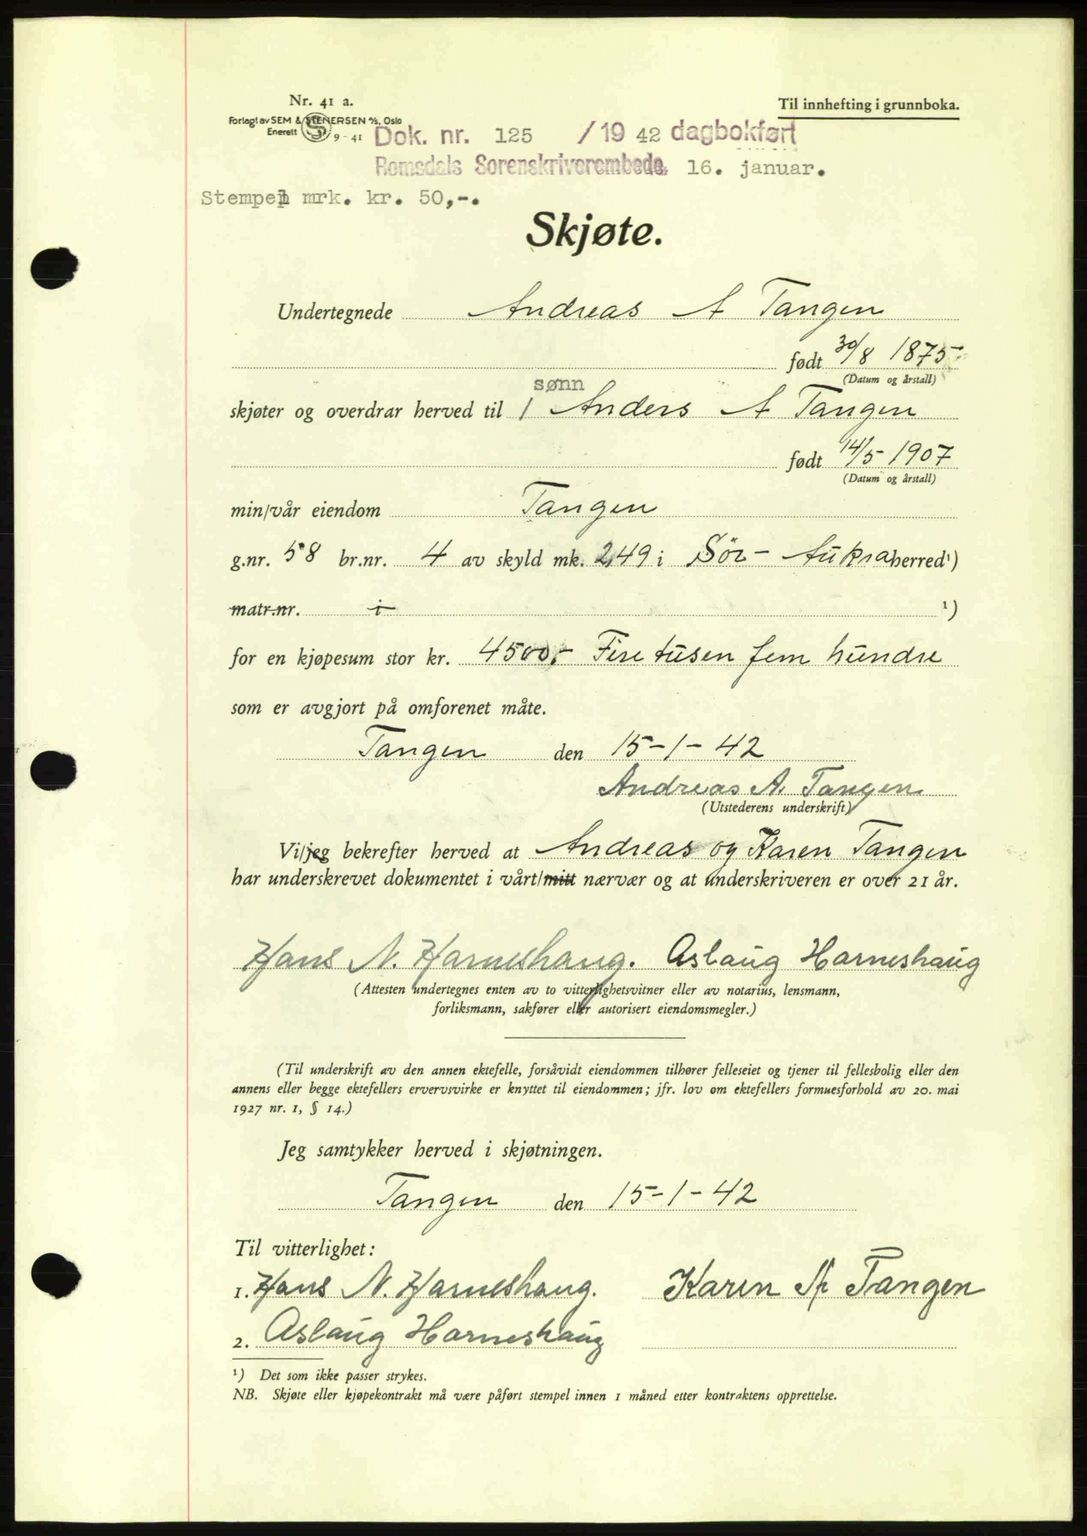 Nr. 41 a.
Til innhefting i grunnboka.
Forlagt av SEM & STENERSEN A/S, Oslo
Enerett 9-41
Dok. nr. 125 / 19 42 dagbokført
Romsdals Sorenskriverembede, 16. januar.
Stempel mrk. kr. 50,-.
Skjøte.
Undertegnede Andreas A Tangen
født 30/8 1875
(Datum og årstall)
sønn
skjøter og overdrar herved til Anders A Tangen
født 14/5 1907
(Datum og årstall)
min/vår eiendom Tangen
g.nr. 58 br.nr. 4 av skyld mk. 2,49 i Sör-Aukra herred¹)
matr.nr. i ¹)
for en kjøpesum stor kr. 4500,- Fire tusen fem hundre
som er avgjort på omforenet måte.
Tangen den 15-1-42
Andreas A. Tangen
(Utstederens underskrift)
Vi/jeg bekrefter herved at Andreas og Karen Tangen
har underskrevet dokumentet i vårt/mitt nærvær og at underskriveren er over 21 år.
Hans N. Harneshaug. Aslaug Harneshaug
(Attesten undertegnes enten av to vitterlighetsvitner eller av notarius, lensmann,
forliksmann, sakfører eller autorisert eiendomsmegler.)
(Til underskrift av den annen ektefelle, forsåvidt eiendommen tilhører felleseiet og tjener til fellesbolig eller den
annens eller begge ektefellers ervervsvirke er knyttet til eiendommen; jfr. lov om ektefellers formuesforhold av 20. mai
1927 nr. 1, § 14.)
Jeg samtykker herved i skjøtningen.
Tangen den 15-1-42
Til vitterlighet:
1. Hans N. Harneshaug. Karen Tangen
2. Aslaug Harneshaug
¹) Det som ikke passer strykes.
NB. Skjøte eller kjøpekontrakt må være påført stempel innen 1 måned etter kontraktens opprettelse.